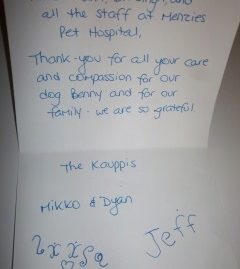 all the staff at Menzies
Pet Hospital,
Thank-you for all your care
and compassion for our
dog Benny and for our
family - we are so grateful
The Kauppis
Mikko & Dyan
Jeff